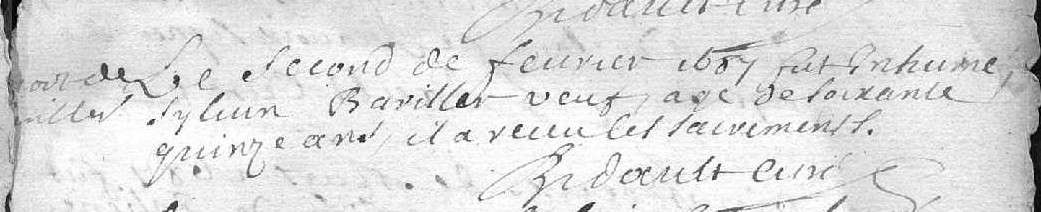 Bidault curé
mort de Le second de feurier 1687 fut Inhumé
Syluin Barillet veuf, agé de soixante
quinze ans, il a receu les sacrements.
Bidault curé